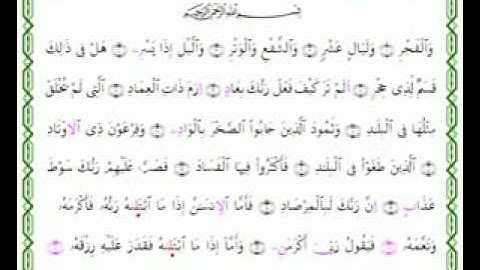 بِسْمِ اللَّهِ الرَّحْمَٰنِ الرَّحِيمِ
وَٱلْفَجْرِ ۝ وَلَيَالٍ عَشْرٍ ۝ وَٱلشَّفْعِ وَٱلْوَتْرِ ۝ وَٱلَّيْلِ إِذَا يَسْرِۦ ۝ هَلْ فِى ذَٰلِكَ
قَسَمٌ لِّذِى حِجْرٍ ۝ اَلَمْ تَرَ كَيْفَ فَعَلَ رَبُّكَ بِعَادٍ ۝ اِرَمَ ذَاتِ ٱلْعِمَادِ ۝ ٱلَّتِى لَمْ يُخْلَقْ
مِثْلُهَا فِى ٱلْبِلَٰدِ ۝ وَثَمُودَ ٱلَّذِينَ جَابُواْ ٱلصَّخْرَ بِالْوَادِۦ ۝ وَفِرْعَوْنَ ذِى ٱلَاوْتَادِ
۝ ٱلَّذِينَ طَغَوْاْ فِى ٱلْبِلَٰدِ ۝ فَأَكْثَرُواْ فِيهَا ٱلْفَسَادَ ۝ فَصَبَّ عَلَيْهِمْ رَبُّكَ سَوْطَ
عَذَابٍ ۝ اِنَّ رَبَّكَ لَبِالْمِرْصَادِ ۝ فَأَمَّا ٱلِانسَٰنُ إِذَا مَا ٱبْتَلَىٰهُ رَبُّهُۥ فَأَكْرَمَهُۥ
وَنَعَّمَهُۥ ۝ فَيَقُولُ رَبِّىَ أَكْرَمَنِۦ ۝ وَأَمَّا إِذَا مَا ٱبْتَلَىٰهُ فَقَدَرَ عَلَيْهِ رِزْقَهُۥ ۝